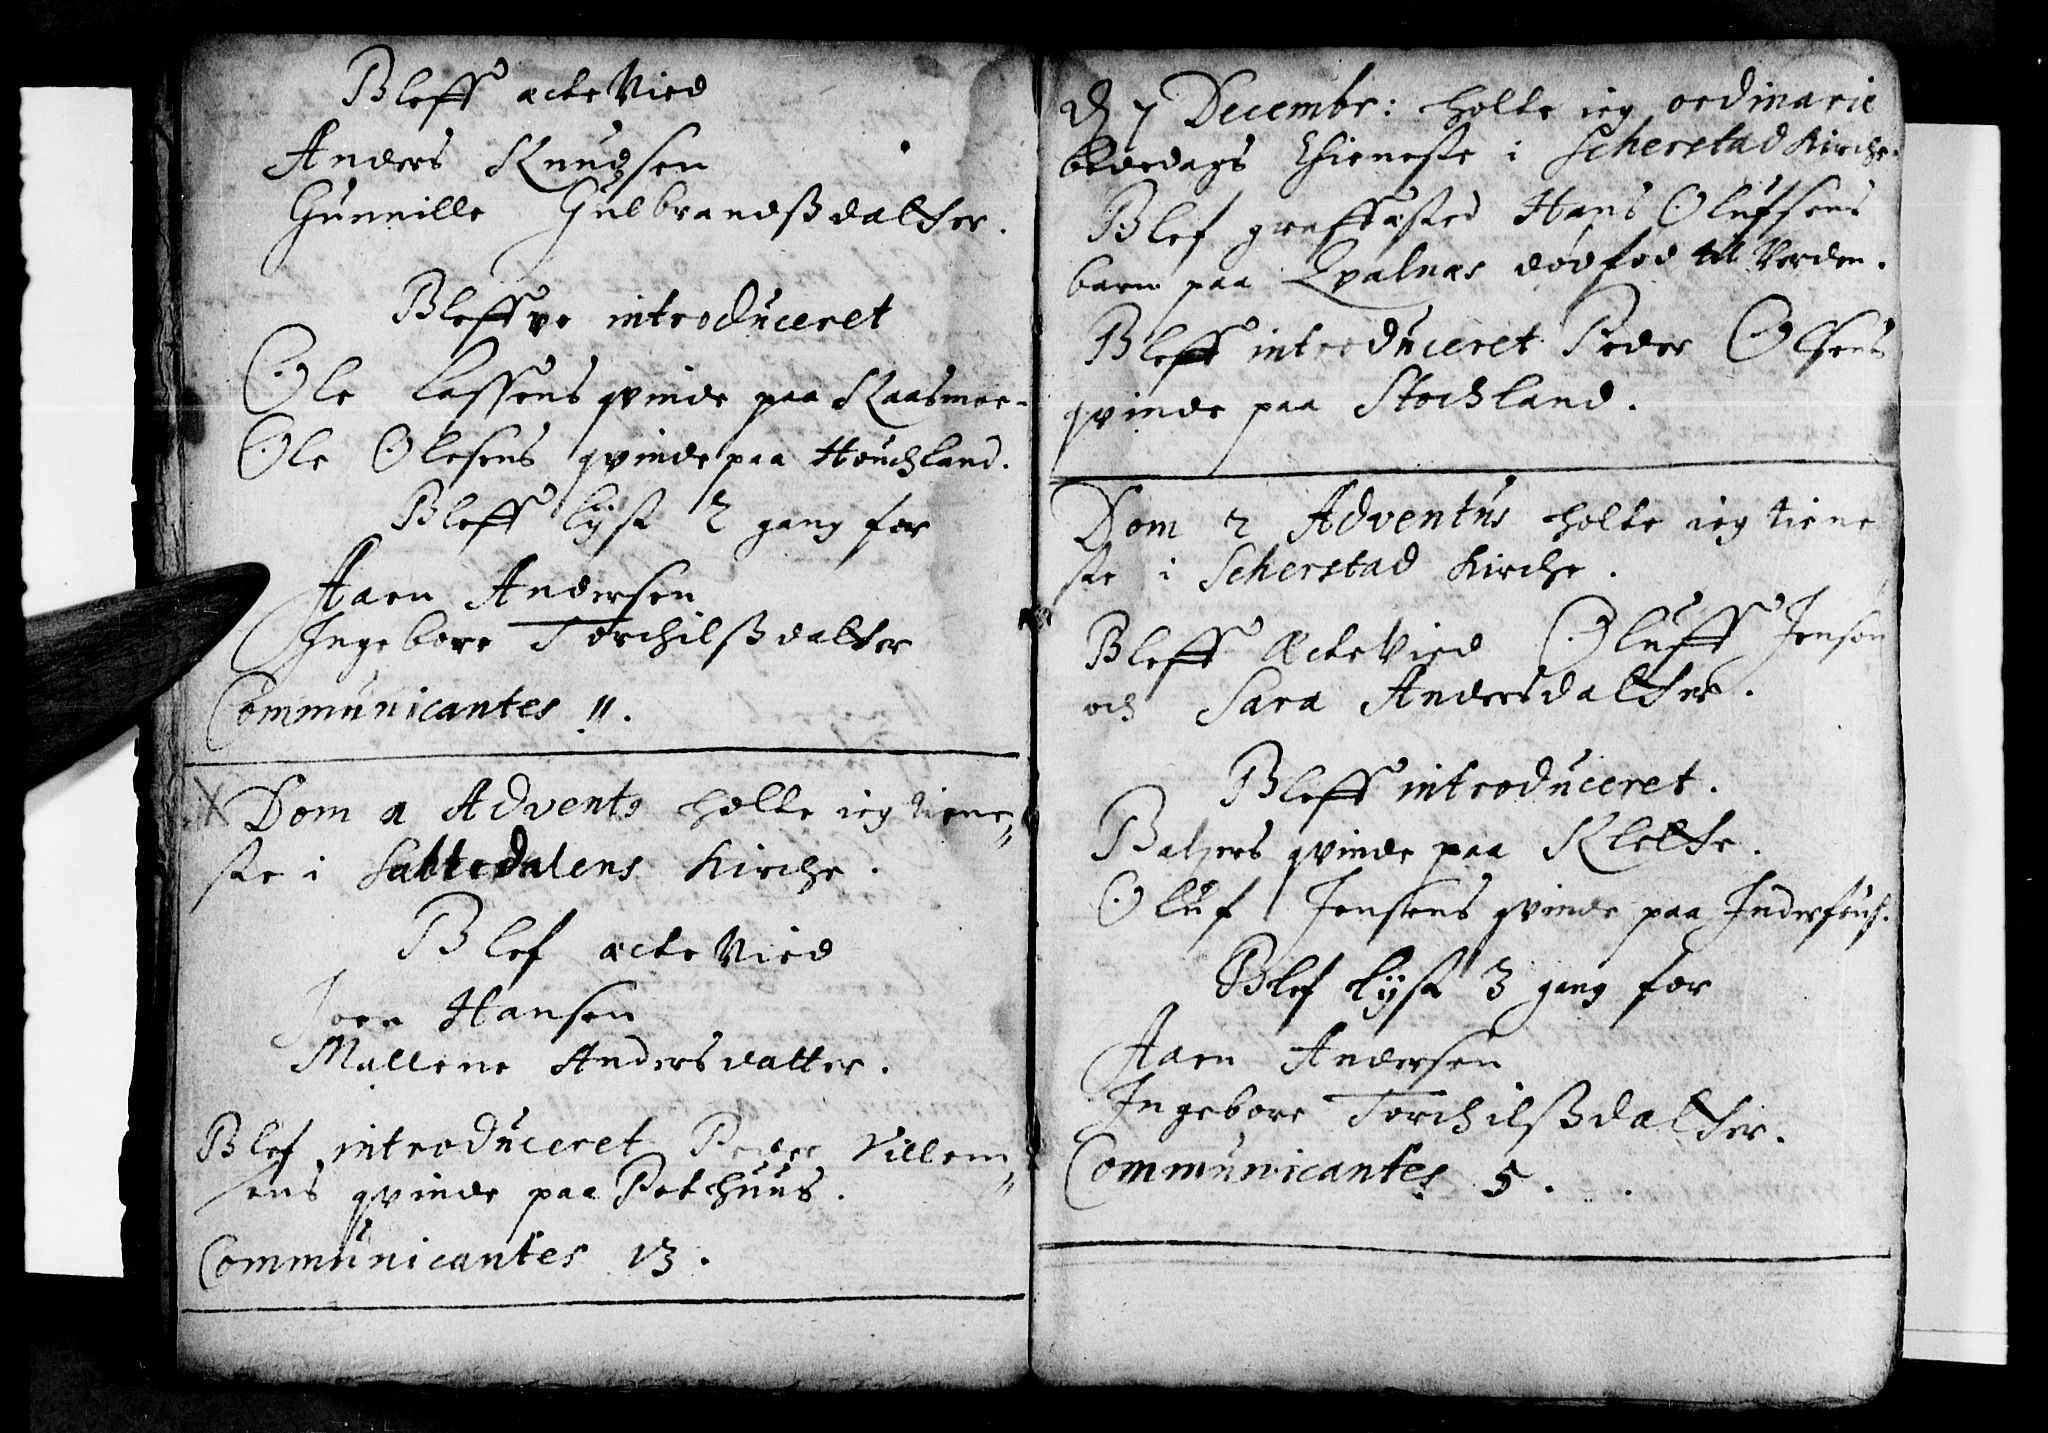 Bleff æcte Vied
Anders Knudsen
Gunnille Gulbrandsdatter.
Bleffve introduceret
Ole Lassens qvinde paa Kaasmoe
Ole Olesens qvinde paa Houchland.
Bleff lyst 2 gang for
Aaen Andersen
Ingeborre Torchilsdatter
Communicantes 11.
X Dom 1 Advents holte ieg tiene„
ste i Saltedalens Kirche.
Blef æcte Vied
Joen Hansen
Mallene Andersdatter.
Blef introduceret Peder Villem„
sens qvinde paa Potchuus.
Communicantes 13.
D 7 Decembr: holte ieg ordinarie
bededags thieneste i Scherstad Kirche.
Blef graffæsted Hans Olufsens
barn paa Qvalnæs død fød til Verden.
Bleff introduceret Peder Olsens
qvinde paa Stochland.
Dom 2 Adventus holte ieg tiene
ste i Scherstad Kirche.
Bleff Æcte Vied Oluff Jensøn
och Sara Andersdatter.
Bleff introduceret.
Balzers qvinde paa Klette.
Oluf Jensens qvinde paa
Blef lyst 3 gang for
Aaen Andersen
Ingeborre Torchilsdatter.
Communicantes 5.